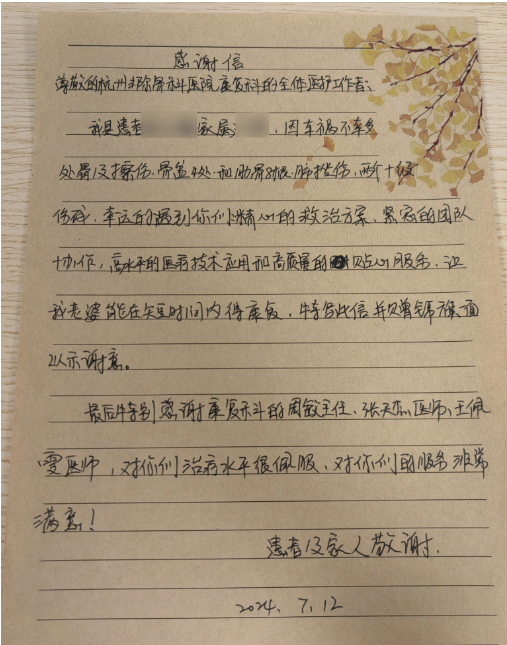 感谢信
尊敬的杭州邦尔骨科医院康复科的全体医护工作者：
我是患者 家属 ，因车祸不幸多
处骨及擦伤、骨盆4处和肋骨8根、肺挫伤，两个十级
伤残，幸运的遇到你们精心的救治方案，紧密的团队
协作，高水平的医疗技术应用和高质量的贴心服务，让
我老婆能在短时间内得康复，特写此信并赠锦旗一面
以示谢意。
最后特别感谢康复科的周敏主任、张天 医师、王佩
雯医师，对你们治疗水平很佩服、对你们的服务非常
满意！
患者及家人敬谢.
2024. 7. 12